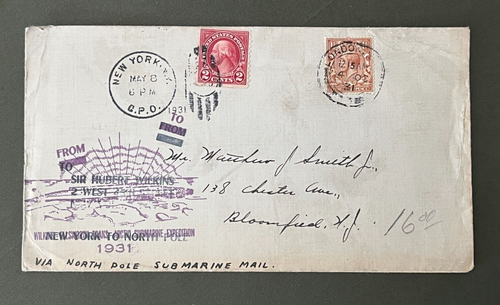 NEW YORK, N.Y.
MAY 8
6 PM
1931
G.P.O.
UNITED STATES POSTAGE
2 CENTS 2
LONDON
FROM
TO
TO
FROM
SIR HUBERT WILKINS
2 WEST
TRANS-ARCTIC SUBMARINE EXPEDITION
NEW YORK TO NORTH POLE
1931
VIA NORTH POLE SUBMARINE MAIL.
Mr. Matthew J Smith Jr.,
138 Chester Ave.,
Bloomfield, N.J.
16.00